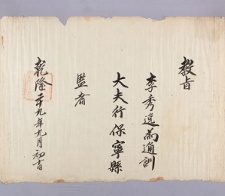 教旨
李秀逸爲通訓
大夫行保寧縣
監者
乾隆二十九年九月初